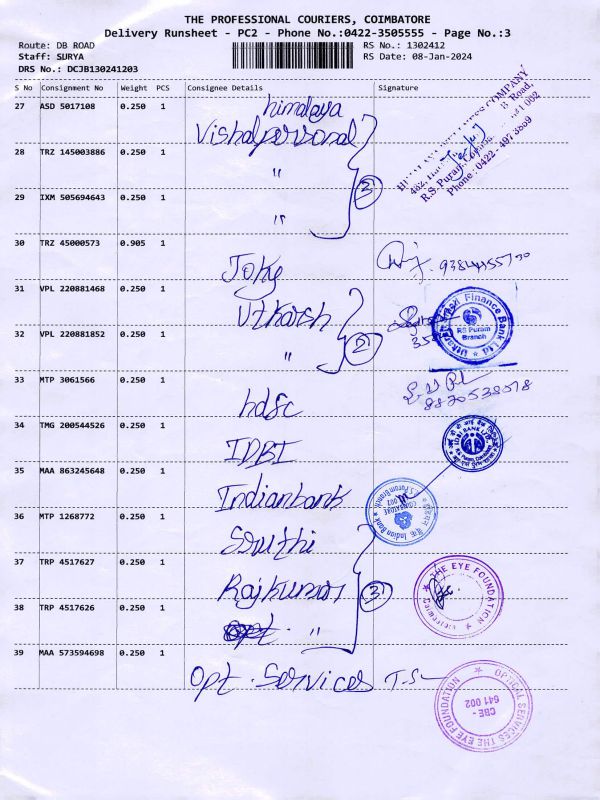 THE PROFESSIONAL COURIERS, COIMBATORE
Delivery Runsheet - PC2 - Phone No.:0422-3505555 - Page No.:3
Route: DB ROAD
Staff: SURYA
DRS No.: DCJB130241203
RS No.: 1302412
RS Date: 08-Jan-2024
S No Consignment No Weight PCS Consignee Details Signature
27 ASD 5017108 0.250 1 himalaya
Vishal personal
28 TRZ 145003886 0.250 1 "
29 IXM 505694643 0.250 1 "
3
COMPANY
B Road,
R.S. Puram,
Phone: 0422-497 3869
30 TRZ 45000573 0.905 1
9384455730
31 VPL 220881468 0.250 1 Utkarsh
32 VPL 220881852 0.250 1 "
2
Utkarsh Small Finance Bank Ltd
RS Puram
Branch
33 MTP 3061566 0.250 1 hdfc
8870538578
34 TMG 200544526 0.250 1 IDBI
IDBI BANK LTD
35 MAA 863245648 0.250 1 Indianbank
Indian Bank
R.S. Puram Branch
COIMBATORE
641 002
36 MTP 1268772 0.250 1 Sruthi
37 TRP 4517627 0.250 1 Rajkumar
38 TRP 4517626 0.250 1 "
3
THE EYE FOUNDATION
39 MAA 573594698 0.250 1 Opt. Services
OPTICAL SERVICES THE EYE FOUNDATION
CBE -
641 002